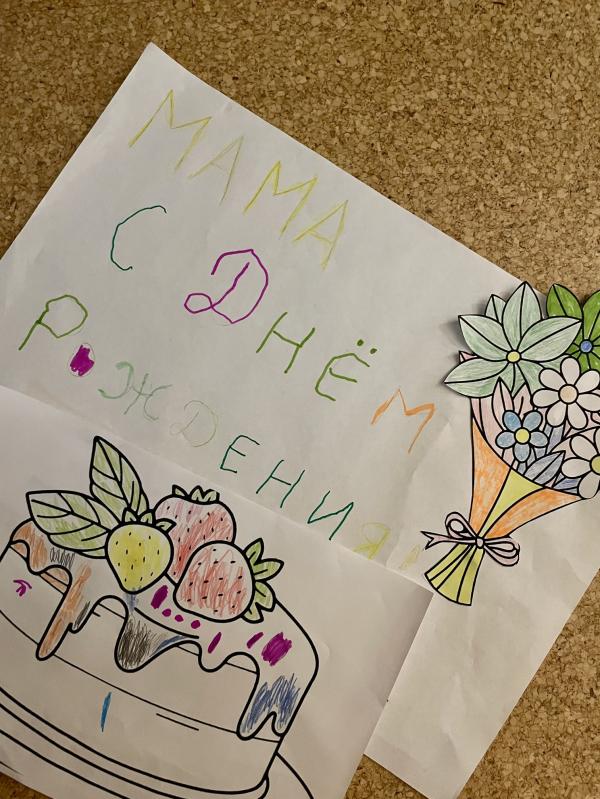 МАМА
С ДНЁМ
РОЖДЕНИЯ